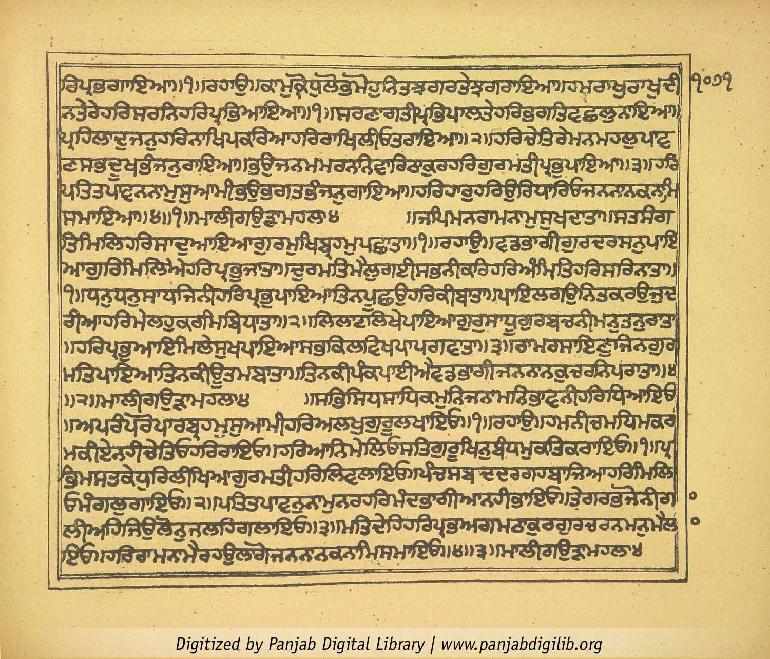 ਰਿਪ੍ਰਭਗਾਇਆ॥੧॥ਰਹਾਉ॥ਕਾਮੁਕ੍ਰੋਧੁਲੋਭੁਮੋਹੁਨਿਤਝਗਰਤੇਝਗਰਾਇਆ॥ਹਮਰਾਖੁਰਾਖੁਦੀ ੧੦੭੧
ਨਤੇਰੇਹਰਿਸਰਨਿਹਰਿਪ੍ਰਭਿਆਇਆ॥੧॥ਸਰਣਾਗਤੀਪ੍ਰਤਿਪਾਲਤੇਹਰਿਭਗਤਿਵਛਲੁਨਾਇਆ॥
ਪ੍ਰਹਿਲਾਦੁਜਨੁਹਰਿਨਾਖਿਪਕਰਿਆਹਰਿਰਾਖਿਲੀਓਤਰਾਇਆ॥੨॥ਹਰਿਚੇਤਿਰੇਮਨਮਹਲੁਪਾਵ
ਣਸਭਦੂਖਭੰਜਨੁਰਾਇਆ॥ਭਉਜਨਮਮਰਨਨਿਵਾਰਿਠਾਕੁਰਹਰਿਗੁਰਮਤੀਪ੍ਰਭੁਪਾਇਆ॥੩॥ਹਰਿ
ਪਤਿਤਪਾਵਨਨਾਮੁਸੁਆਮੀਭਉਭਗਤਭੰਜਨੁਗਾਇਆ॥ਹਰਿਹਾਰੁਹਰਿਉਰਿਧਾਰਿਓਜਨਨਾਨਕਨਾਮਿ
ਸਮਾਇਆ॥੪॥੧॥ਮਾਲੀਗਉੜਾਮਹਲਾ੪ ॥ਜਪਿਮਨਰਾਮਨਾਮੁਸੁਖਦਾਤਾ॥ਸਤਸੰਗ
ਤਿਮਿਲਿਹਰਿਸਾਦੁਆਇਆਗੁਰਮੁਖਿਬ੍ਰਹਮੁਪਛਾਤਾ॥੧॥ਰਹਾਉ॥ਵਡਭਾਗੀਗੁਰਦਰਸਨੁਪਾਇ
ਆਗੁਰਿਮਿਲਿਐਹਰਿਪ੍ਰਭੁਜਾਤਾ॥ਦੁਰਮਤਿਮੈਲੁਗਈਸਭਨੀਕਰਿਹਰਿਅੰਮ੍ਰਿਤਿਹਰਿਸਰਿਨਾਤਾ॥
੧॥ਧਨੁਧਨੁਸਾਧਜਿਨੀਹਰਿਪ੍ਰਭੁਪਾਇਆਤਿਨਪੂਛਉਹਰਿਕੀਬਾਤਾ॥ਪਾਇਲਗਉਨਿਤਕਰਉਜੁਦ
ਰੀਆਹਰਿਮੇਲਹੁਕਰਮਿਬਿਧਾਤਾ॥੨॥ਲਿਲਾਟਲਿਖੇਪਾਇਆਗੁਰੁਸਾਧੂਗੁਰਬਚਨੀਮਨੁਤਨੁਰਾਤਾ
॥ਹਰਿਪ੍ਰਭੁਆਇਮਿਲੇਸੁਖੁਪਾਇਆਸਭਕਿਲਵਿਖਪਾਪਗਵਾਤਾ॥੩॥ਰਾਮਰਸਾਇਣੁਜਿਨਗੁਰ
ਮਤਿਪਾਇਆਤਿਨਕੀਊਤਮਬਾਤਾ॥ਤਿਨਕੀਪੰਕਪਾਈਐਵਡਭਾਗੀਜਨਨਾਨਕੁਚਰਨਿਪਰਾਤਾ॥੪
॥੨॥ਮਾਲੀਗਉੜਾਮਹਲਾ੪ ॥ਸਭਿਸਿਧਸਾਧਿਕਮੁਨਿਜਨਾਮਨਿਭਾਵਨੀਹਰਿਧਿਆਇਓ
॥ਅਪਰੰਪਰੋਪਾਰਬ੍ਰਹਮੁਸੁਆਮੀਹਰਿਅਲਖੁਗੁਰੂਲਖਾਇਓ॥੧॥ਰਹਾਉ॥ਹਮਨੀਚਮਧਿਮਕਰ
ਮਕੀਏਨਹੀਚੇਤਿਓਹਰਿਰਾਇਓ॥ਹਰਿਆਨਿਮੇਲਿਓਸਤਿਗੁਰੂਖਿਨੁਬੰਧਮੁਕਤਿਕਰਾਇਓ॥੧॥ਪ੍ਰ
ਭਿਮਸਤਕੇਧੁਰਿਲੀਖਿਆਗੁਰਮਤੀਹਰਿਲਿਵਲਾਇਓ॥ਪੰਚਸਬਦਦਰਗਹਬਾਜਿਆਹਰਿਮਿਲਿ
ਓਮੰਗਲੁਗਾਇਓ॥੨॥ਪਤਿਤਪਾਵਨੁਨਾਮੁਨਰਹਰਿਮੰਦਭਾਗੀਆਨਹੀਭਾਇਓ॥ਤੇਗਰਭਜੋਨੀਗਾ
ਲੀਅਹਿਜਿਉਲੋਨੁਜਲਹਿਗਲਾਇਓ॥੩॥ਮਤਿਦੇਹਿਹਰਿਪ੍ਰਭਅਗਮਠਾਕੁਰਗੁਰਚਰਨਮਨੁਮੈਲਾ
ਇਓ॥ਹਰਿਰਾਮਨਾਮੈਰਹਉਲਾਗੋਜਨਨਾਨਕਨਾਮਿਸਮਾਇਓ॥੪॥੩॥ਮਾਲੀਗਉੜਾਮਹਲਾ੪
Digitized by Panjab Digital Library | www.panjabdigilib.org